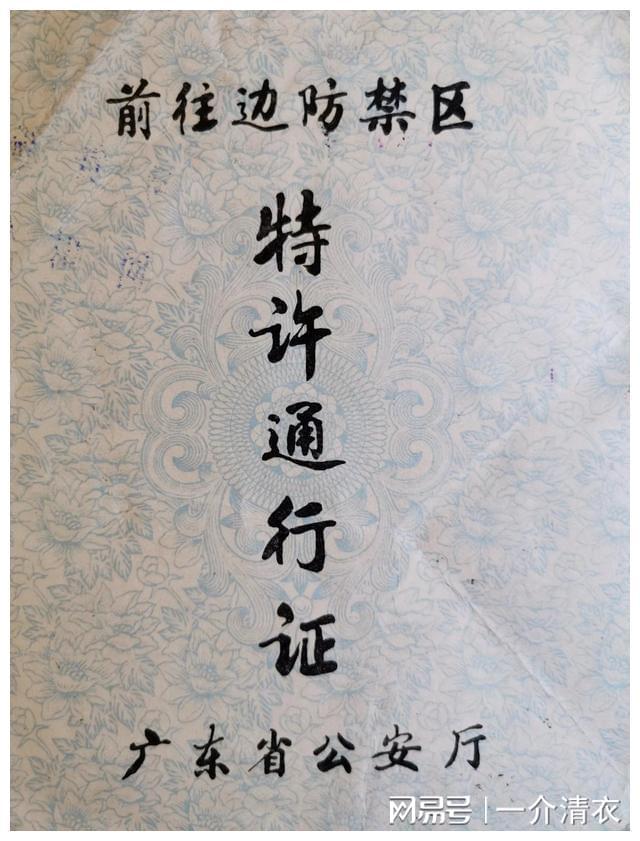 前往边防禁区
特许通行证
广东省公安厅
网易号|一介清衣